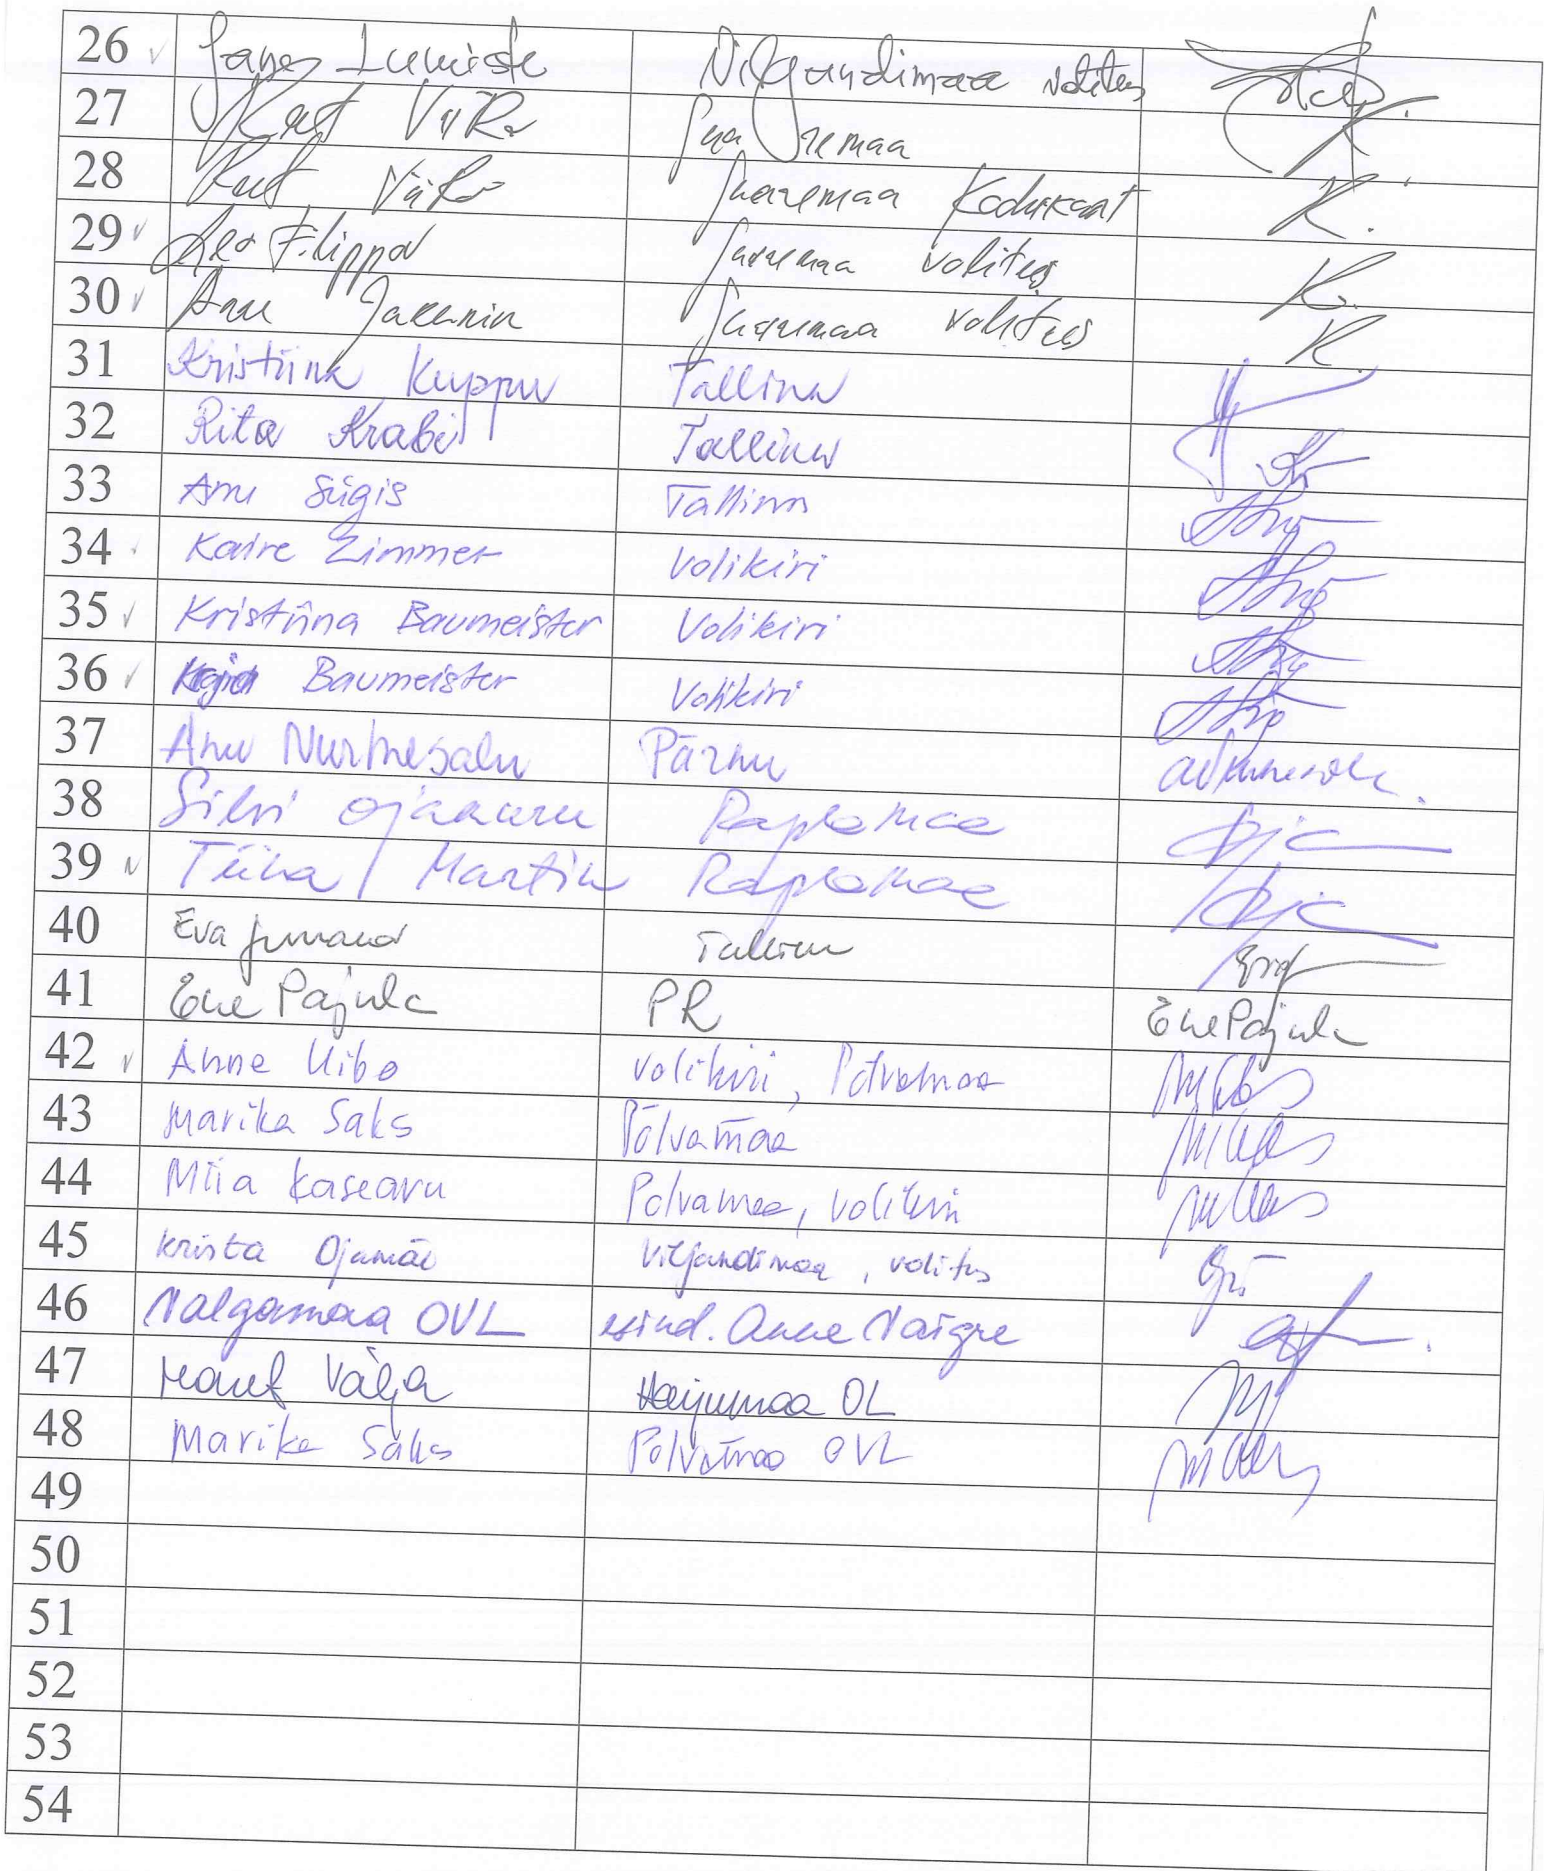 26 Janes Lumiste Viljandimaa volitus
27 Rut Viira Saaremaa
28 Rut Viira Saaremaa Kodukant
29 Leo Filippov Saaremaa volitus
30 Anu Saaremaa volitus
31 Kristiina Kuppu Tallinn
32 Rita Krabi Tallinn
33 Anu Sügis Tallinn
34 Kaire Zimmer Volikiri
35 Kristiina Baumeister Volikiri
36 Baumeister Volikiri
37 Anu Nurmesalu Pärnu
38 Silvi Ojaauru Raplamaa
39 Tiina Martin Raplamaa
40 Eva Tallinn
41 Ene Pajula PR Ene Pajula
42 Anne Uibo volikiri, Põlvamaa
43 Marika Saks Põlvamaa
44 Miia Kasearu Põlvamaa, volikiri
45 Krista Ojamäe Viljandimaa, volitus
46 Valgamaa OVL esind. Anne Vaigre
47 Välja Harjumaa OL
48 Marika Saks Põlvamaa OVL
49
50
51
52
53
54